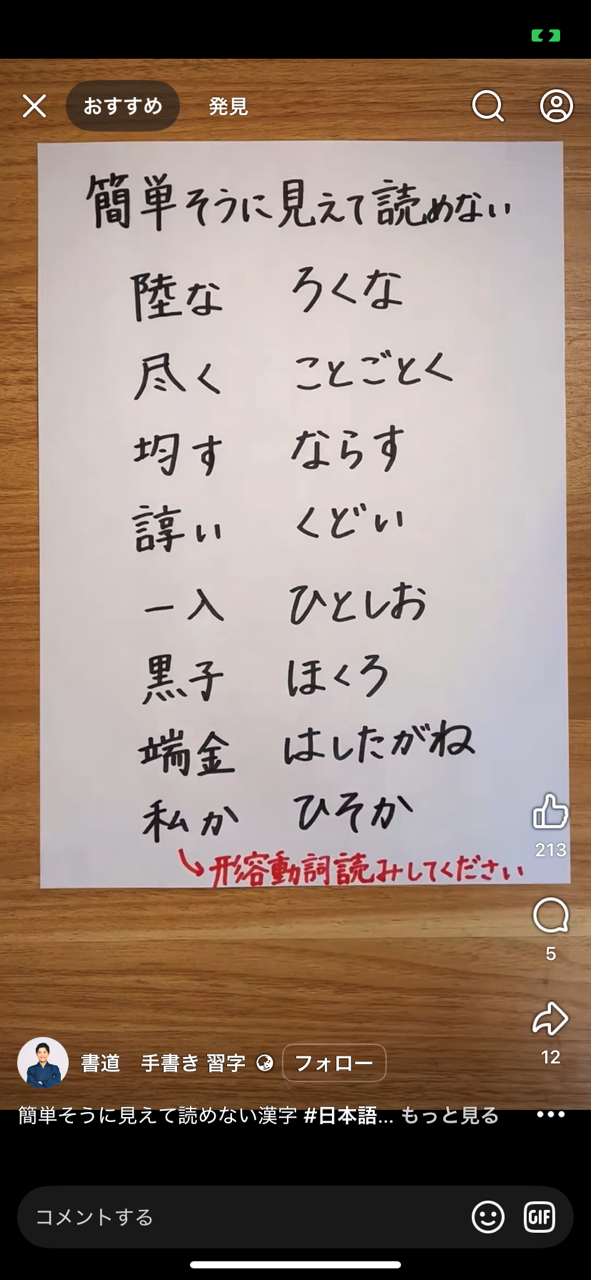 おすすめ 発見
簡単そうに見えて読めない
陸な ろくな
尽く ことごとく
均す ならす
諄い くどい
一入 ひとしお
黒子 ほくろ
端金 はしたがね
私か ひそか
形容動詞読みしてください
213
5
12
書道 手書き 習字 フォロー
簡単そうに見えて読めない漢字 #日本語... もっと見る
コメントする GIF